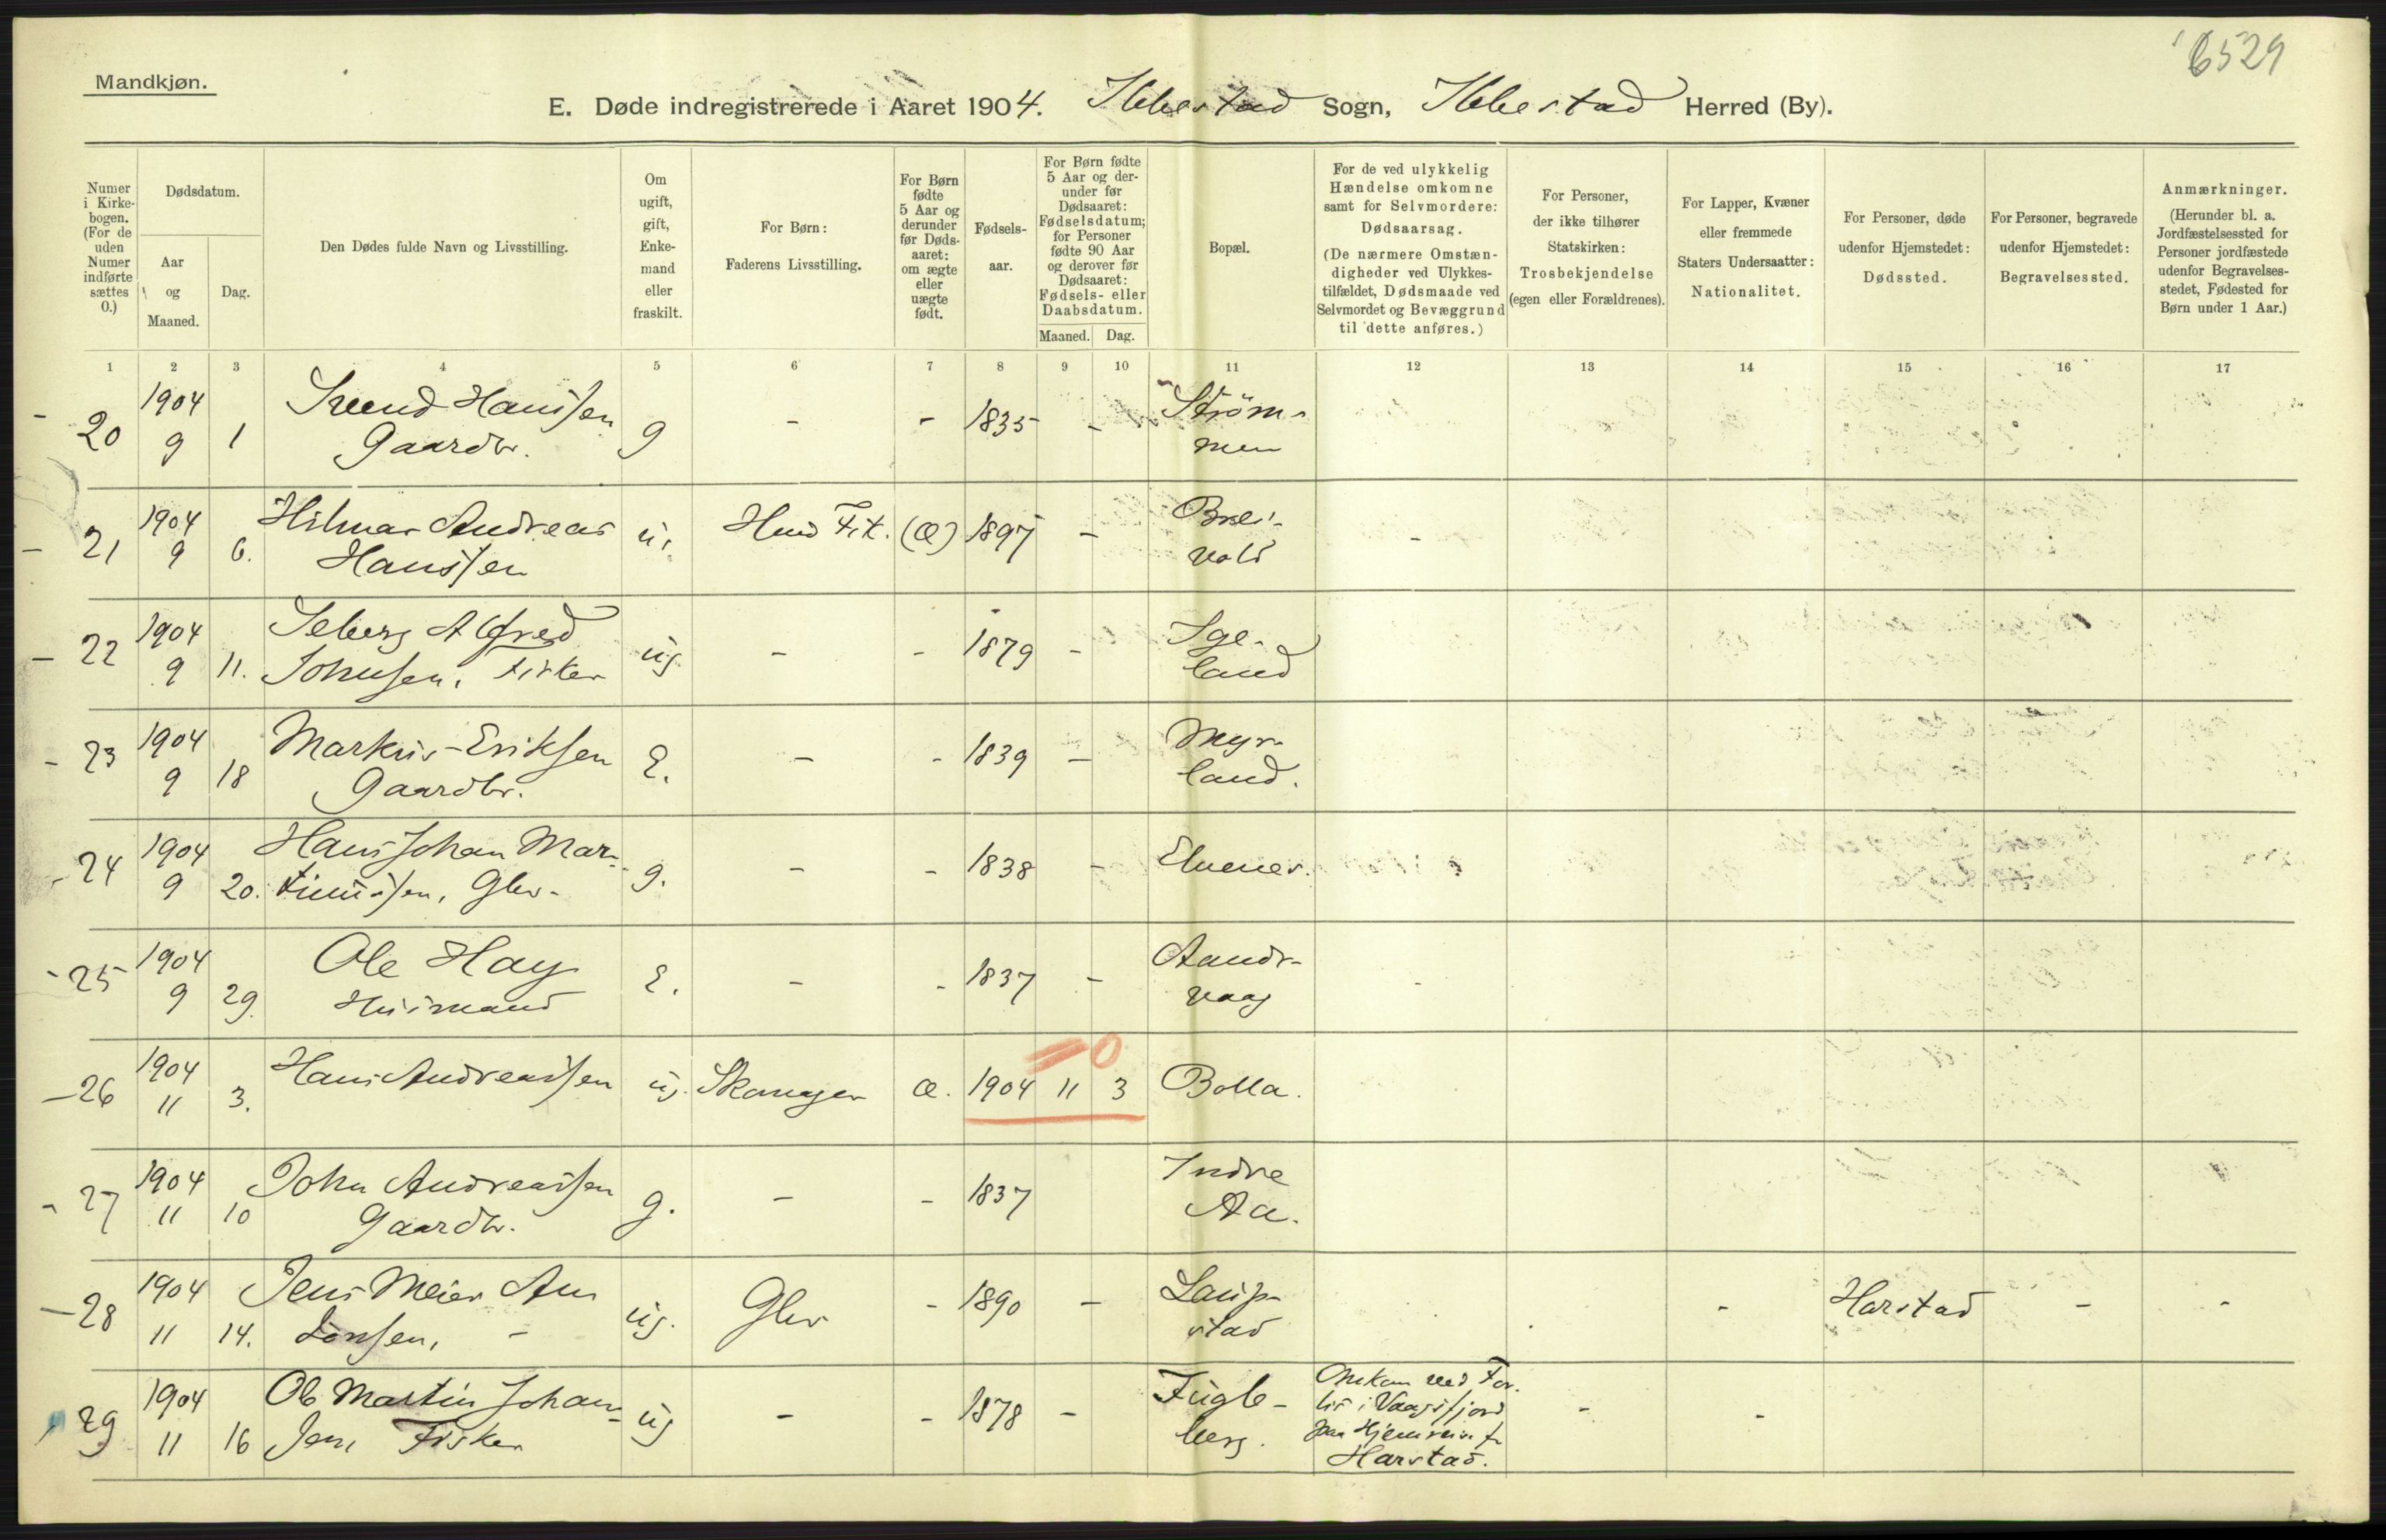 6529
Mandkjøn.
E. Døde indregistrerede i Aaret 1904. Ibbestad Sogn, Ibbestad Herred (By).
Numer i Kirkebogen. (For de uden Numer indførte sættes 0.)
Dødsdatum.
Aar og Maaned.
Dag.
Den Dødes fulde Navn og Livsstilling.
Om ugift, gift, Enkemand eller fraskilt.
For Børn: Faderens Livsstilling.
For Børn fødte 5 Aar og derunder før Dødsaaret: om ægte eller uægte født.
Fødselsaar.
For Børn fødte 5 Aar og derunder før Dødsaaret: Fødselsdatum; for Personer fødte 90 Aar og derover før Dødsaaret: Fødsels- eller Daabsdatum.
Maaned. Dag.
Bopæl.
For de ved ulykkelig Hændelse omkomne samt for Selvmordere: Dødsaarsag. (De nærmere Omstændigheder ved Ulykkestilfældet, Dødsmaade ved Selvmordet og Bevæggrund til dette anføres.)
For Personer, der ikke tilhører Statskirken: Trosbekjendelse (egen eller Forældrenes).
For Lapper, Kvæner eller fremmede Staters Undersaatter: Nationalitet.
For Personer, døde udenfor Hjemstedet: Dødssted.
For Personer, begravede udenfor Hjemstedet: Begravelsessted.
Anmærkninger. (Herunder bl. a. Jordfæstelsessted for Personer jordfæstede udenfor Begravelsesstedet, Fødested for Børn under 1 Aar.)
1 2 3 4 5 6 7 8 9 10 11 12 13 14 15 16 17
20 1904 9 1 Svend Hanssen Gaardbr. g - - 1835 - Strömmen
21 1904 9 6. Hilmar Andreas Hanssen u. Husd Fisk. (Æ) 1897 - Breivold -
22 1904 9 11. Seberg Alfred Johnsen, Fisker ug - - 1879 - Igeland
23 1904 9 18 Markus Eriksen Gaardbr. E. - - 1839 - Myrland.
24 1904 9 20. Hans Johan Martinussen, Gbr. g. - - 1838 - Elvenes.
25 1904 9 29. Ole Hay Husmand E. - - 1837 - Aandervaag -
26 1904 11 3. Hans Andreassen ug. Skomager Æ. 1904 11 3 0 Bolla.
27 1904 11 10 John Andreassen Gaardbr. g. - - 1837 Indre Aa.
28 1904 11 14. Jens Meier Antonsen, - ug. Gbr - 1890 - Laupstad - Harstad - -
29 1904 11 16 Ole Martin Johansen, Fisker ug - - 1878 - Fugleberg. Omkom ved Forlis i Vaagsfjord paa Hjemreise fr Harstad. - -